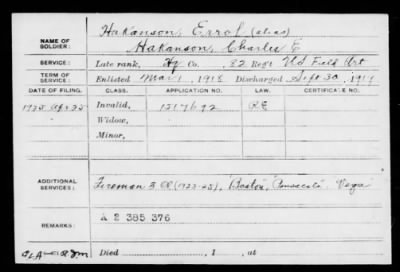 NAME OF SOLDIER: Hakanson, Errol (alias)
Hakanson, Charles E
SERVICE: Late rank, Hq Co. , 82 Reg't Fld Field Art
TERM OF SERVICE: Enlisted Mar 1, 1918 Discharged Sept 30, 1919
DATE OF FILING. CLASS. APPLICATION NO. LAW. CERTIFICATE NO.
1925 Apr 25 Invalid, 1217692 RE
Widow,
Minor,
ADDITIONAL SERVICES: Fireman 3 Cl (1923-25), "Boston", "Pensacola", Vega"
REMARKS: A 2 385 376
Died , 1 , at